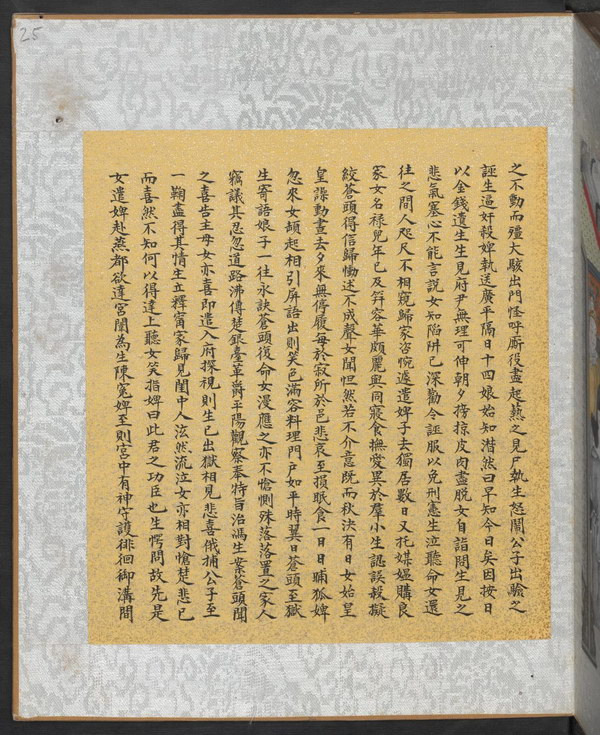 25
之不動而殭大駭出門怪呼廝役盡起爇之見尸執生怒鬧公子出驗之
誣生逼奸殺婢執送廣平隔日十四娘始知潸然曰早知今日矣因按日
以金錢遺生生見府尹無理可伸朝夕搒掠皮肉盡脫女自詣問生見之
悲氣塞心不能言說女知陷阱已深勸令誣服以免刑憲生泣聽命女還
往之間人咫尺不相窺歸家咨惋遽遣婢子去獨居數日又托媒媼購良
家女名祿兒年已及笄容華頗麗與同寢食撫愛異於羣小生認誤殺擬
絞蒼頭得信歸慟述不成聲女聞怛然若不介意既而秋決有日女始皇
皇譟動晝去夕來無停履每於寂所於邑悲哀至損眠食一日日晡狐婢
忽來女頓起相引屏語出則笑色滿容料理門戶如平時翼日蒼頭至獄
生寄語娘子一往永訣蒼頭復命女漫應之亦不愴惻殊落落置之家人
竊議其忍忽道路沸傳楚銀臺革爵平陽觀察奉特旨治馮生案蒼頭聞
之喜告主母女亦喜即遣入府探視則生已出獄相見悲喜俄捕公子至
一鞫盡得其情生立釋甯家歸見闈中人泫然流泣女亦相對愴楚悲已
而喜然不知何以得達上聽女笑指婢曰此君之功臣也生愕問故先是
女遣婢赴燕都欲達宮闈為生陳冤婢至則宮中有神守護徘徊御溝間